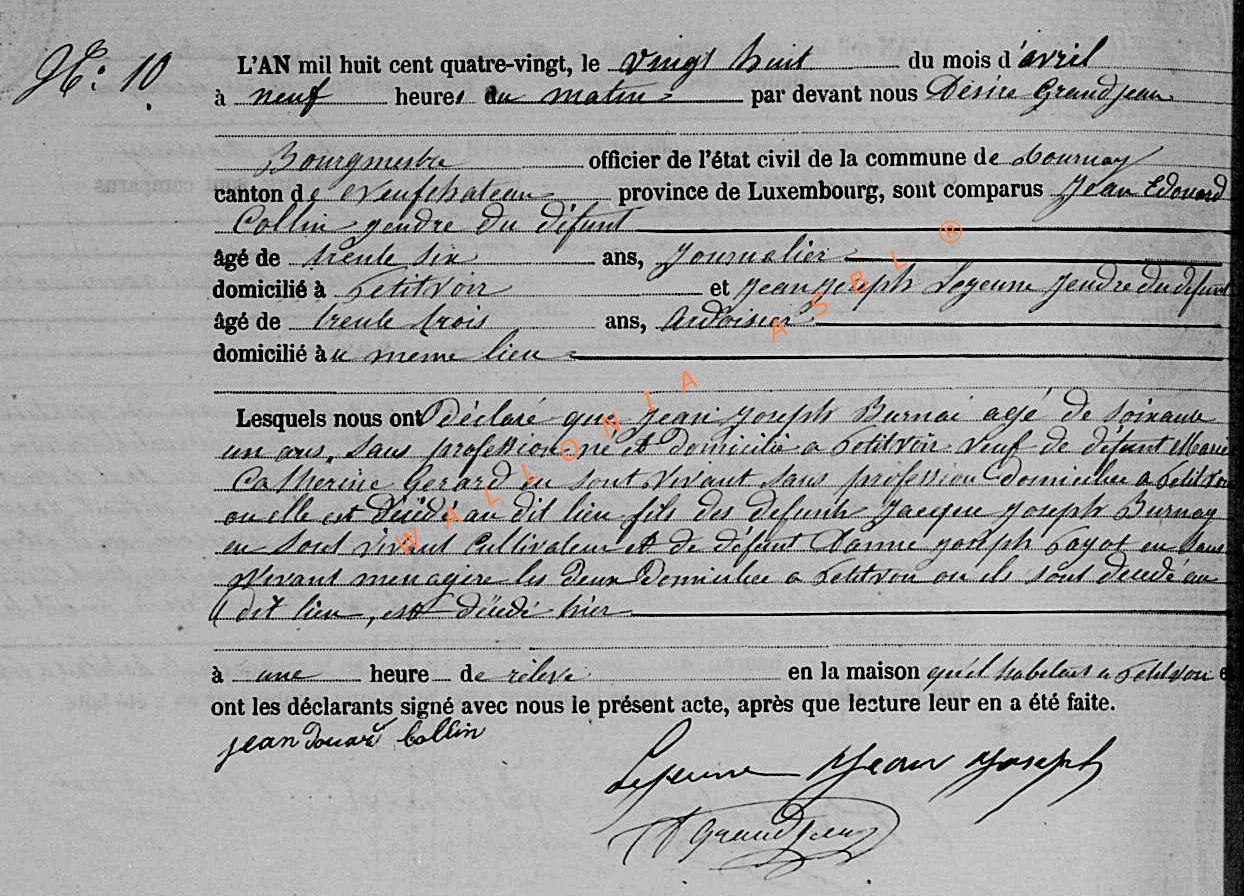 N: 10
L'AN mil huit cent quatre-vingt, le vingt huit du mois d'avril
à neuf heures du matin par devant nous Désiré Grandjean
Bourgmestre officier de l'état civil de la commune de Tournay
canton de Neufchateau province de Luxembourg, sont comparus Jean Edouard
Collin gendre du défunt
âgé de trente six ans, Journalier
domicilié à Petitvoir et Jean Joseph Lejeune gendre du défunt
âgé de trente trois ans, Ardoisier
domicilié à u meme lieu
Lesquels nous ont Déclaré que Jean Joseph Burnai agé de soixante
un ans, sans profession né et domicilié a Petitvoir veuf de défunt Marie
Catherine Gerard en sont vivant sans profession Domiciliee a Petitvoir
ou elle est décédé au dit lieu fils des defunts Jacque Joseph Burnay
en sont vivant Cultivateur et de défunt Joseph en sont
vivant menagère les deux Domiciliee a Petitvoir ou ils sont décédé au
dit lieu, est décédé hier
à une heure de relevé en la maison qu'il habitait a Petitvoir e
ont les déclarants signé avec nous le présent acte, après que lecture leur en a été faite.
jean douard Collin
Lejeune Jean Joseph
D Grandjean
WALLONIA ASBL ®